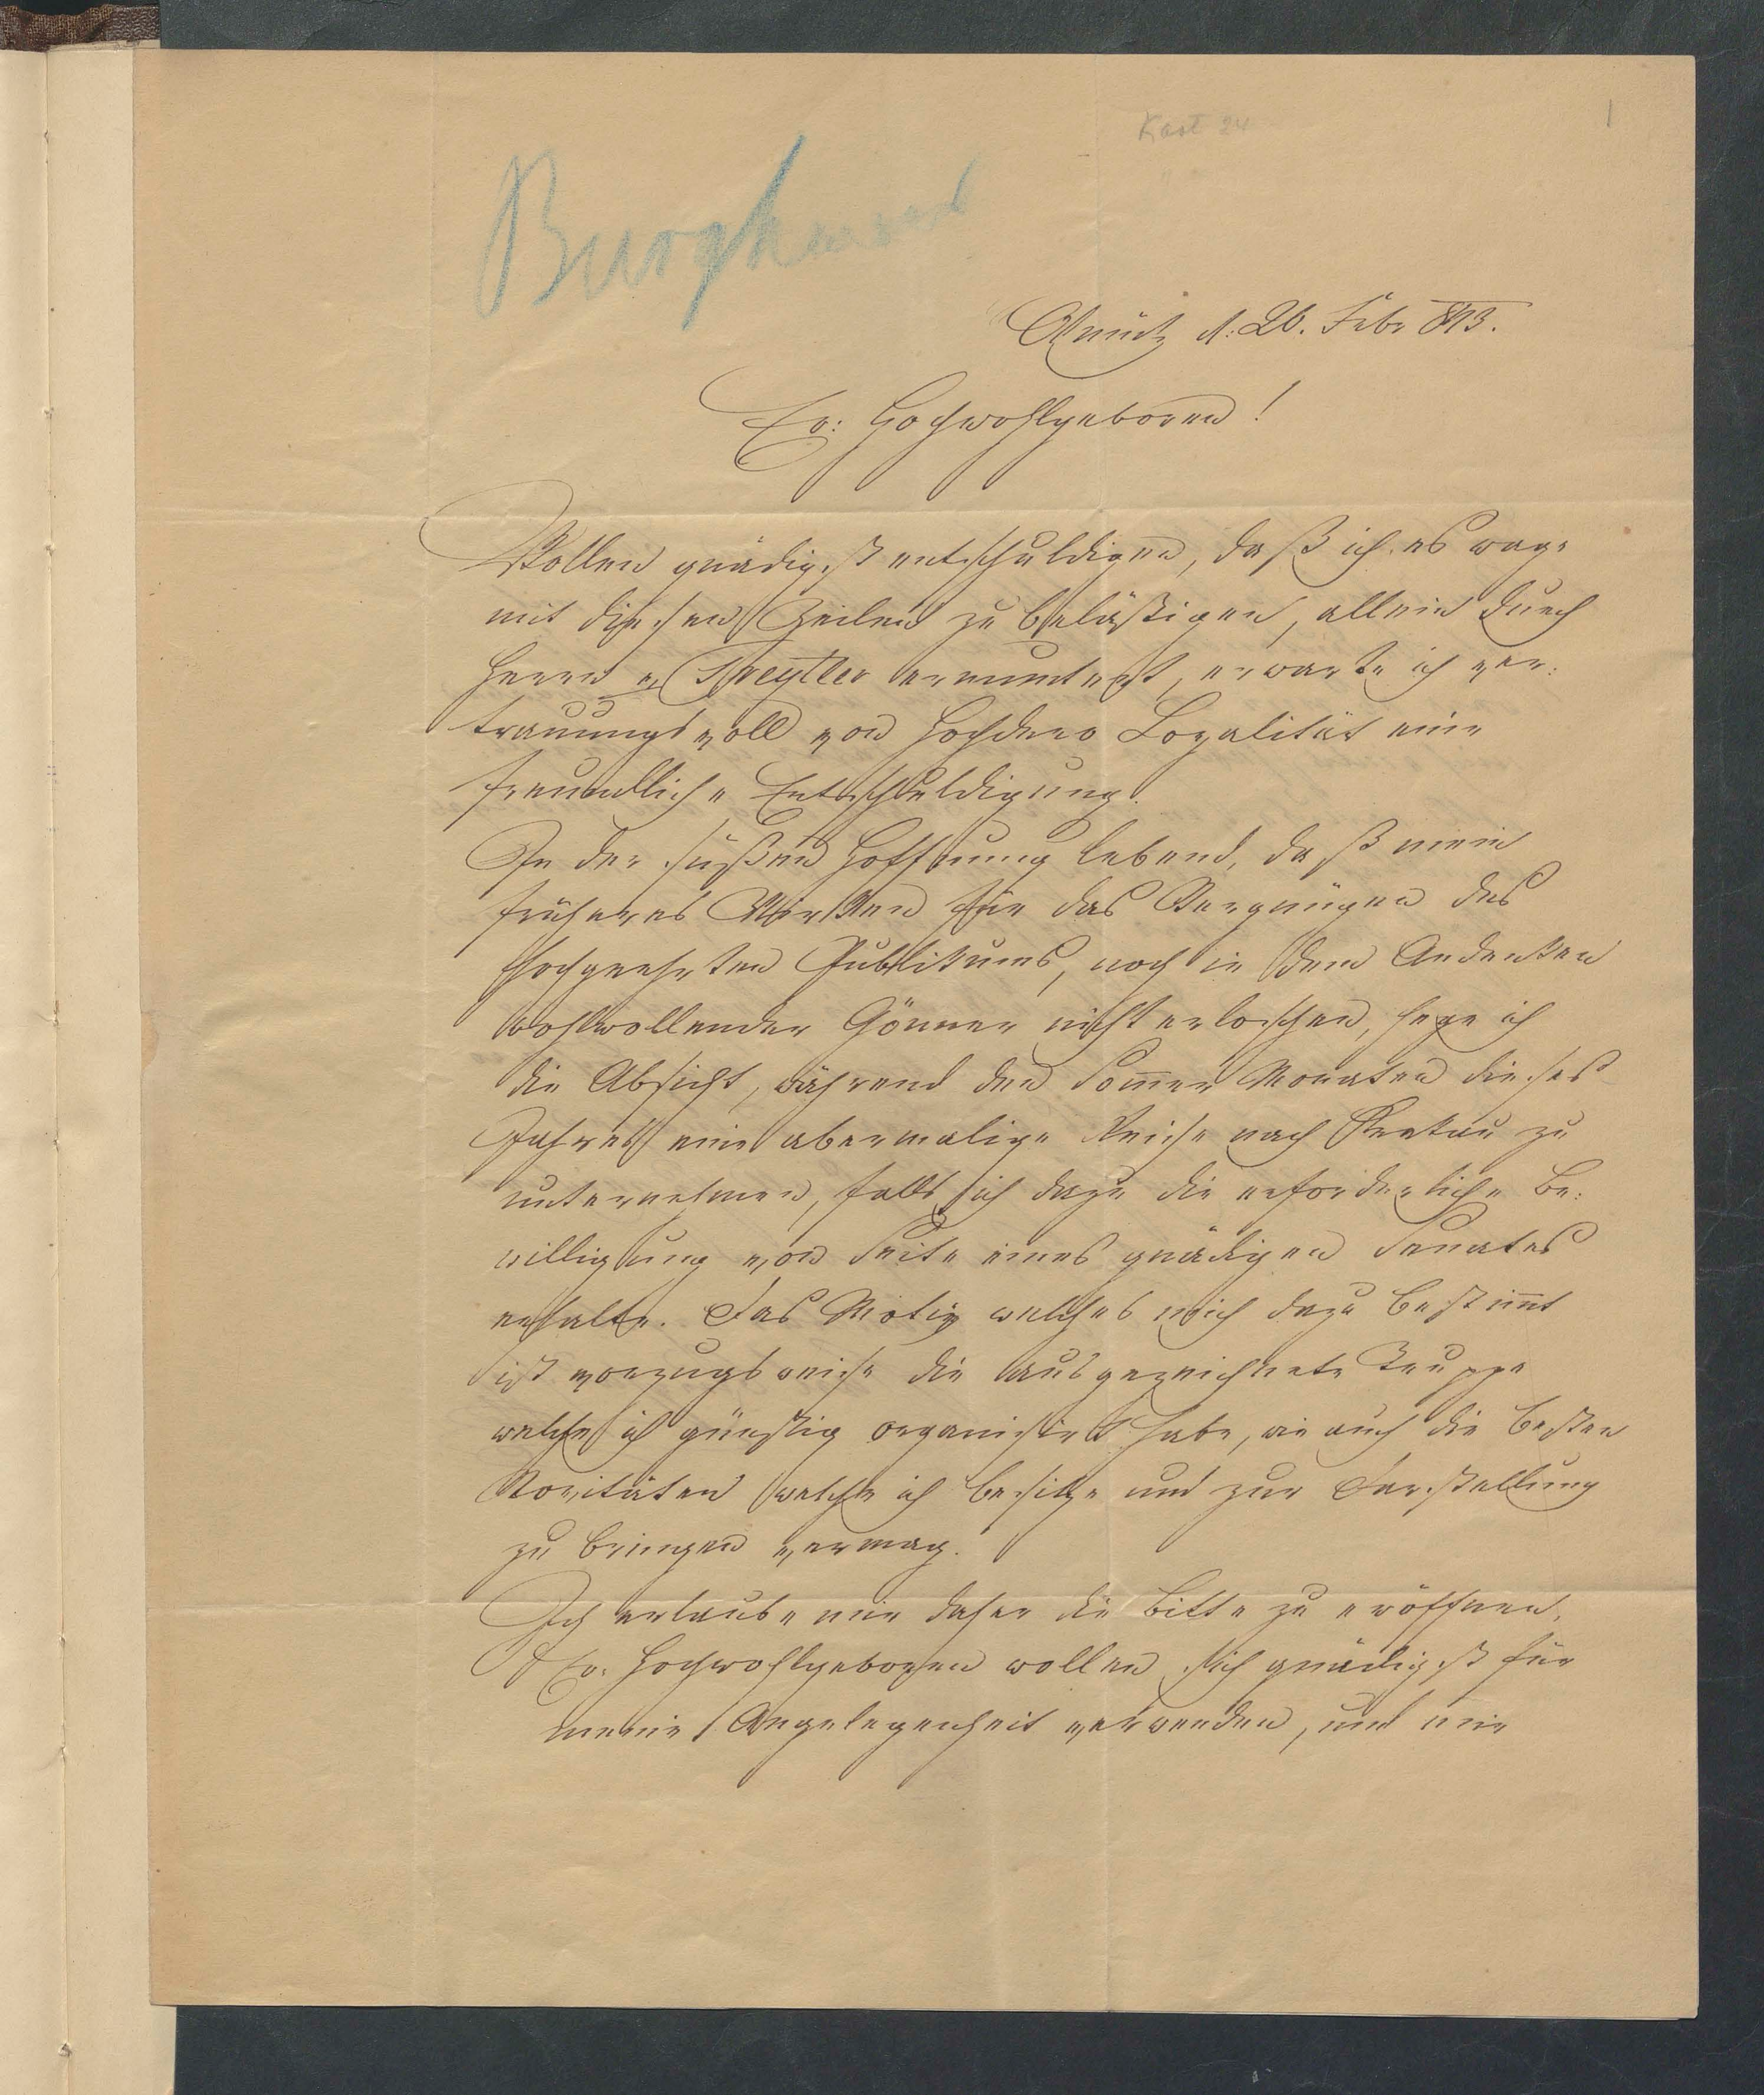 Kast 24
1
Burghauser
Olmütz d: 26. Febr 843.
Er: Hochwohlgeboren!
Wollen gnädigst entschuldigen, daß ich es wage
mit diesen Zeilen zu belästigen, allein durch
Herrn v ermuntert, erwarte ich ver:
trauungsvoll von Hochdero Loyalität eine
freundliche Entschuldigung.
In der süßen Hoffnung lebend, daß mein
früheres Wirken für das Vergnügen des
hochgeehrten Publikums, noch in dem Andenken
wohlwollender Gönner nicht erloschen, hege ich
die Absicht, während den Som̄er Monaten dieses
Jahres eine abermalige Reise nach Krakau zu
unternehmen, falls ich dazu die erforderliche Be:
willigung von Seite eines gnädigen Senates
erhalte. Das Motiv welches mich dazu bestim̄t
ist vorzugsweise die ausgezeichnete Truppe
welche ich günstig organisirt habe, wie auch die besten
Novitäten welche ich besitze und zur Darstellung
zu bringen vermag.
Ich erlaube mir daher die Bitte zu eröffnen,
Er. Hochwohlgeboren wollen sich gnädigst für
meine Angelegenheit verwenden, und mir